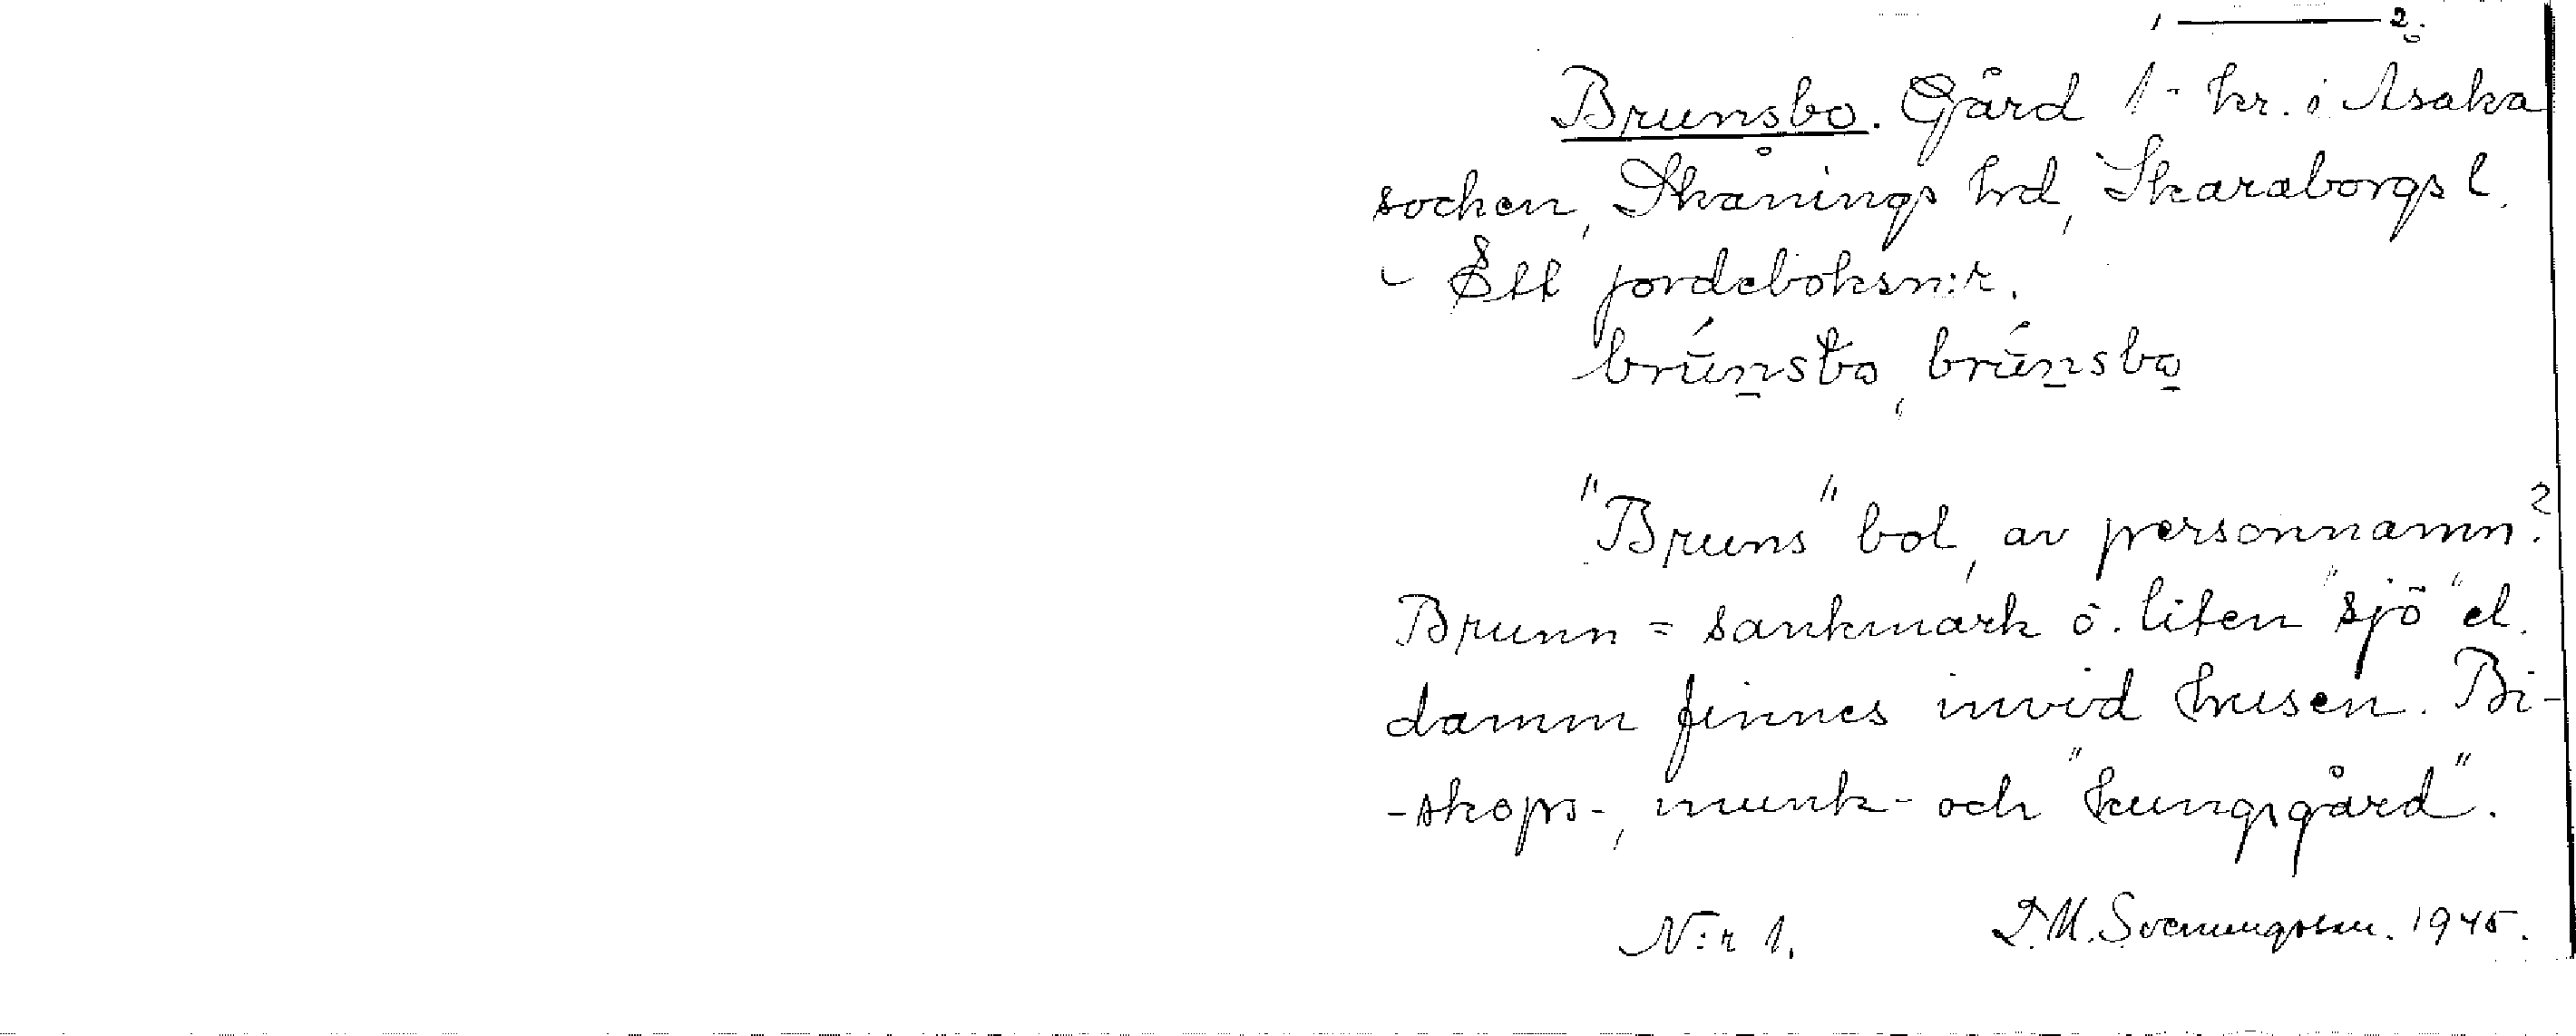 1 — 2.
Brunsbo. Gård 1 - hr. i Åsaka
socken, Skånings hd, Skaraborgs l.
- Ett jordeboksn:r.
brúnsbo, brúnsbo
"Bruns" bol, av personnamn?
Brunn = sankmark o. liten "sjö" el.
damm finnes invid husen. Bi-
-skops-, munk- och "kungsgård".
N:r 1. D.M. Svenungsson. 1945.